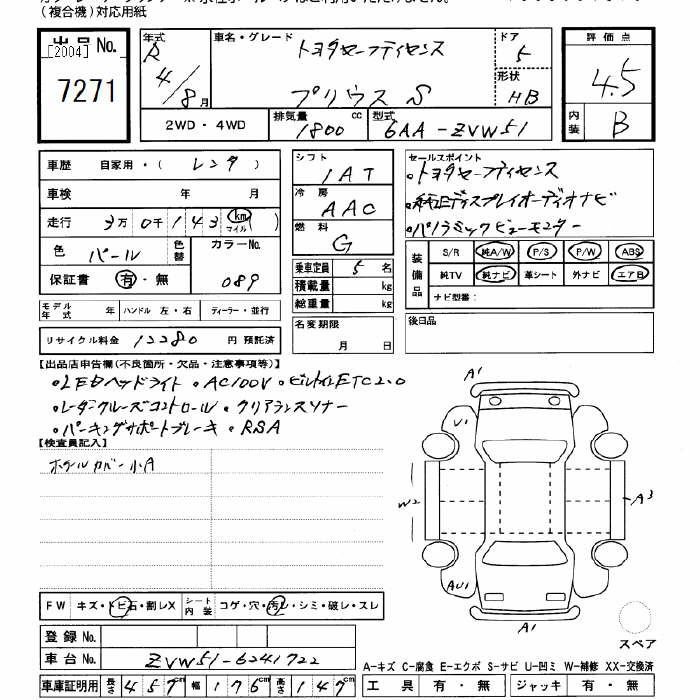 (複合機)対応用紙
出品No.
[2004]
7271
年式 R 4/8月
車名・グレード トヨタセーフティセンス
プリウス S
ドア 5
形状 HB
評価点 4.5
内装 B
2WD・4WD
排気量 1800 cc
型式 6AA-ZVW51
車歴 自家用・( レンタ )
車検 年 月
走行 3万0千143 km マイル ( )
色 パール
色替
カラーNo. 089
保証書 有・無
シフト IAT
冷房 AAC
燃料 G
乗車定員 5名
積載量 kg
総重量 kg
セールスポイント
・トヨタセーフティセンス
・純正ディスプレイオーディオナビ
・パノラミックビューモニター
装備品
S/R 純A/W P/S P/W ABS
純TV 純ナビ 革シート 外ナビ エアB
ナビ型番:
モデル年式 年 ハンドル 左・右 ディーラー・並行
リサイクル料金 12280 円 預託済
名変期限
月 日
後日品
【出品店申告欄(不良箇所・欠品・注意事項等)】
・LEDヘッドライト ・AC100V ・ビルトインETC2.0
・レーダークルーズコントロール ・クリアランスソナー
・パーキングサポートブレーキ ・RSA
【検査員記入】
ホイールカバー小A
A1
U1
W2
A3
AU1
A1
スペア
FW キズ・トビ石・割レX
シート内装 コゲ・穴・汚レ・シミ・破レ・スレ
登録No.
車台No. ZVW51-6241722
A-キズ C-腐食 E-エクボ S-サビ U-凹ミ W-補修 XX-交換済
車庫証明用 長さ 457cm 幅 176cm 高さ 147cm
工具 有・無 ジャッキ 有・無